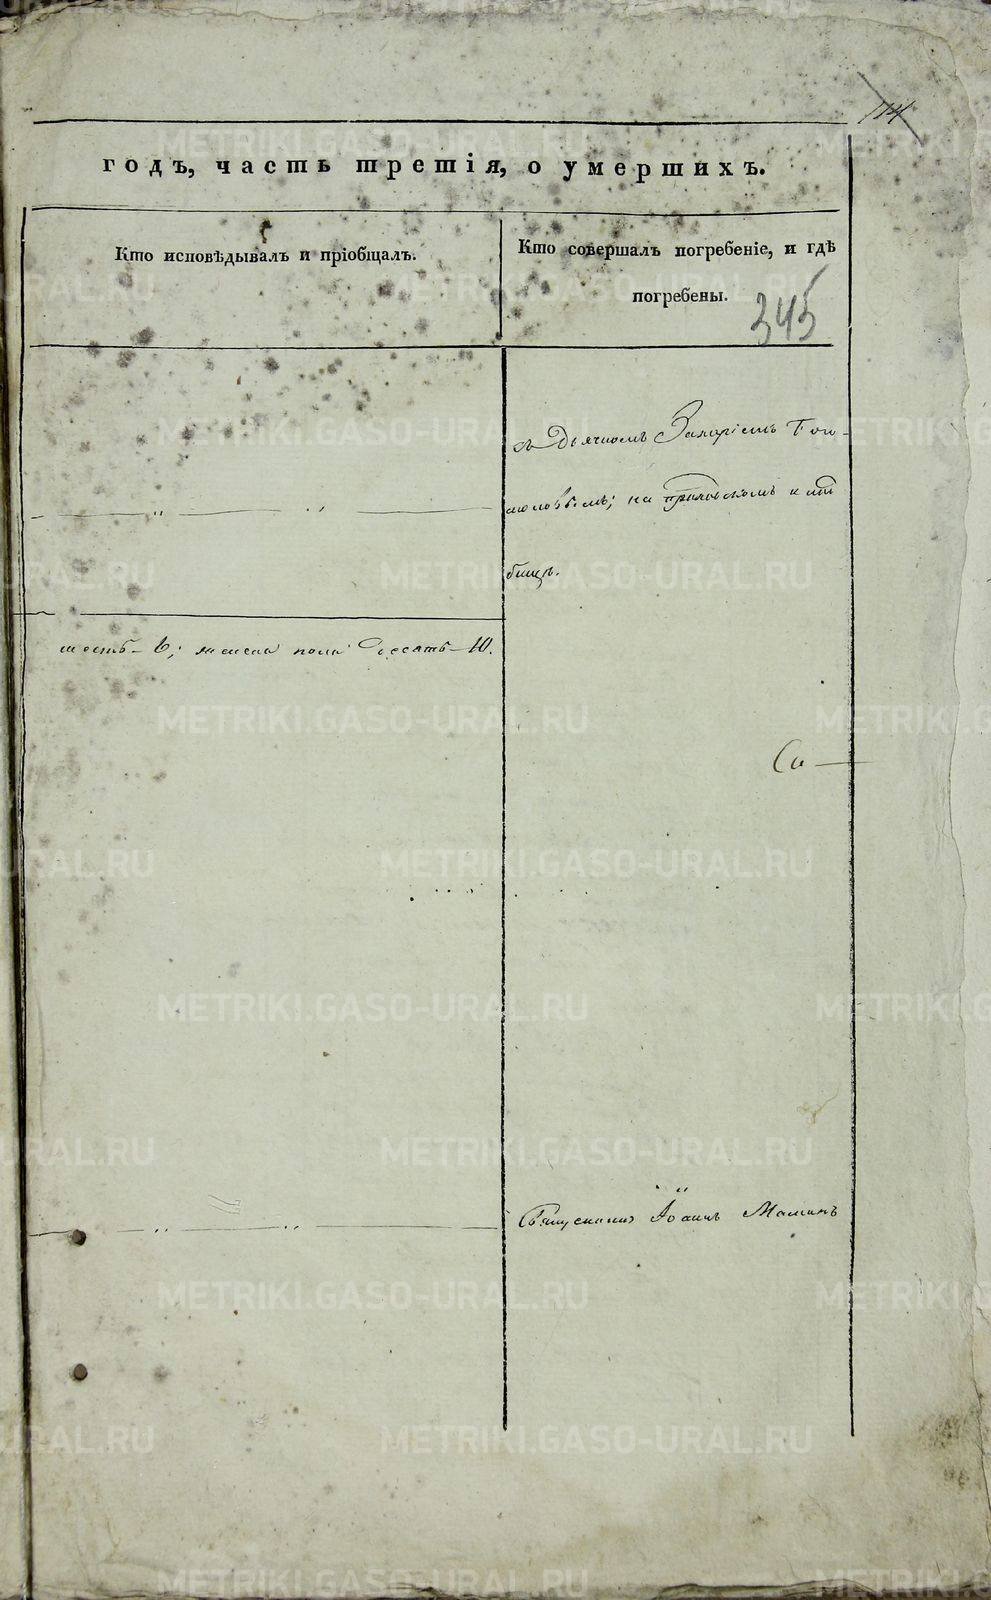 114
годъ, часть третія, о умершихъ.
Кто исповѣдывалъ и пріобщалъ.
Кто совершалъ погребеніе, и гдѣ
погребены.
345
съ дьячкомъ Захаріемъ
на приходскомъ клад
бищѣ.
шесть - 6; женска пола десять - 10.
Священникъ Іоаннъ Маминъ
METRIKI.GASO-URAL.RU